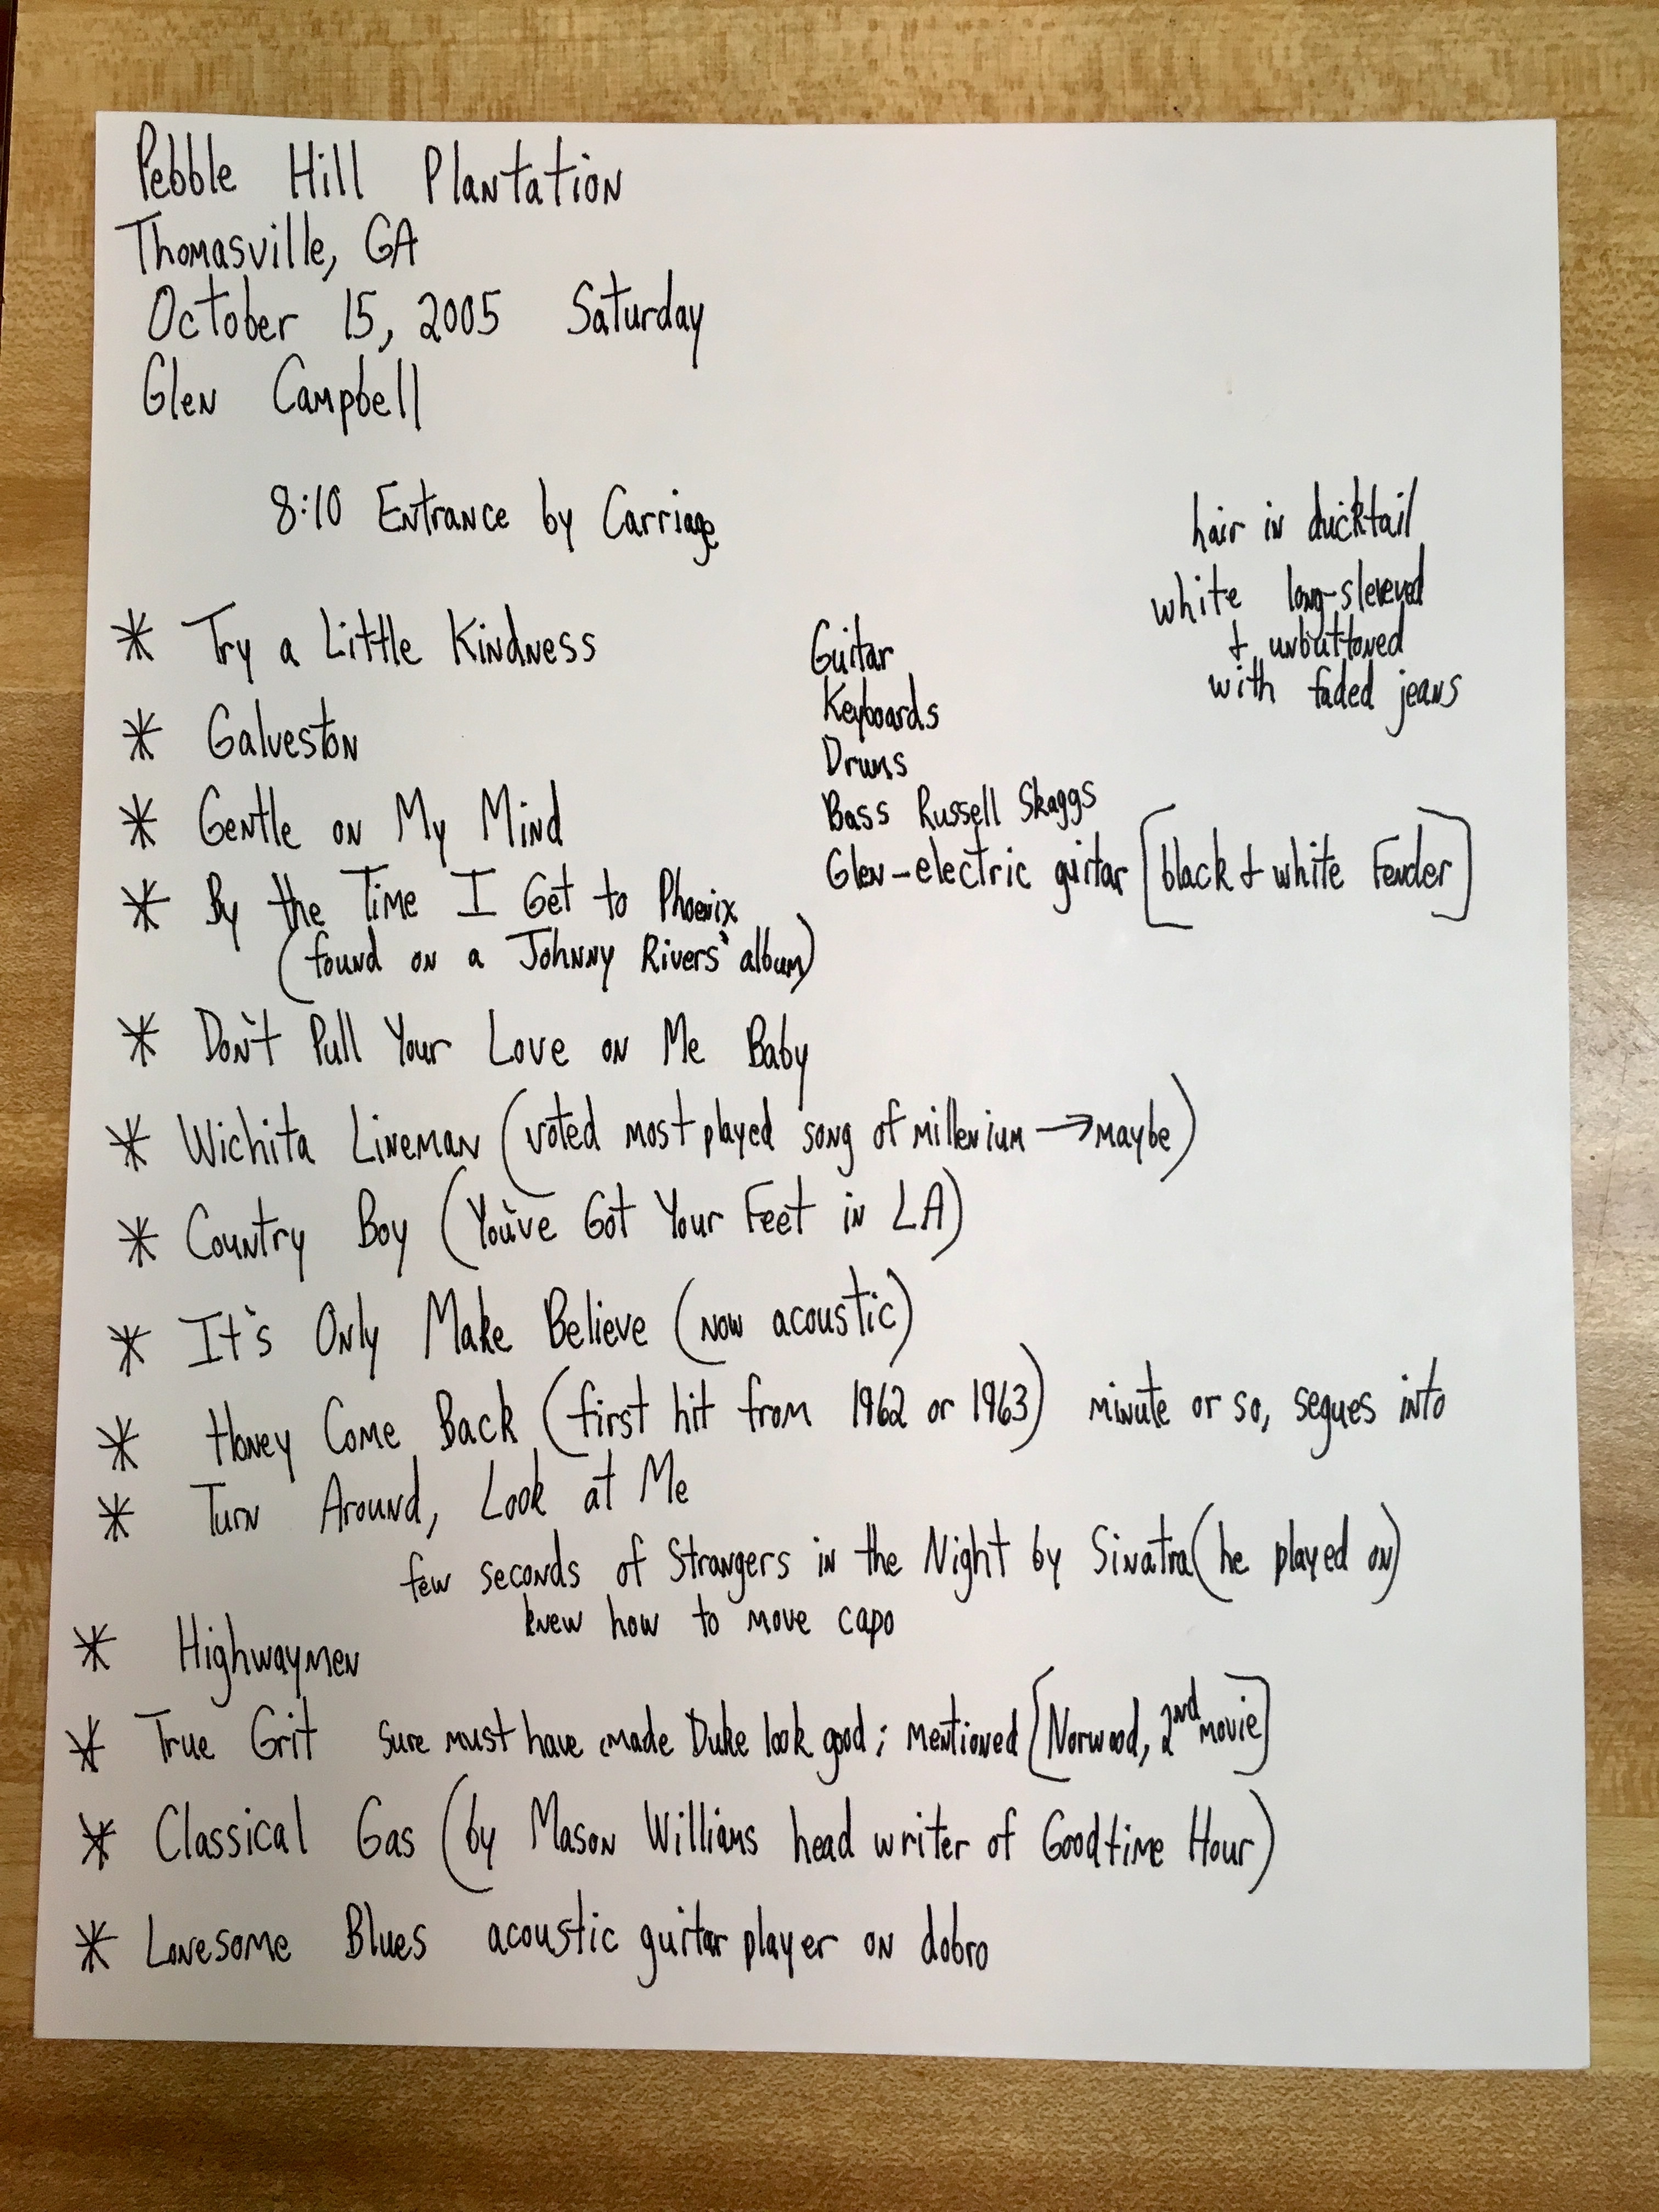 Pebble Hill Plantation
Thomasville, GA
October 15, 2005 Saturday
Glen Campbell
8:10 Entrance by Carriage
hair in ducktail
white long-sleeved
+ unbuttoned
with faded jeans
* Try a Little Kindness
Guitar
Keyboards
* Galveston
Drums
* Gentle on My Mind
Bass Russell Skaggs
Glen-electric guitar [black + white Fender]
* By the Time I Get to Phoenix
(found on a Johnny Rivers' album)
* Don't Pull Your Love on Me Baby
* Wichita Lineman (voted most played song of millenium → maybe)
* Country Boy (You've Got Your Feet in LA)
* It's Only Make Believe (now acoustic)
* Honey Come Back (first hit from 1962 or 1963) minute or so, segues into
* Turn Around, Look at Me
few seconds of Strangers in the Night by Sinatra (he played on)
knew how to move capo
* Highwaymen
* True Grit sure must have made Duke look good; mentioned [Norwood, 2nd movie]
* Classical Gas (by Mason Williams head writer of Goodtime Hour)
* Lonesome Blues acoustic guitar player on dobro